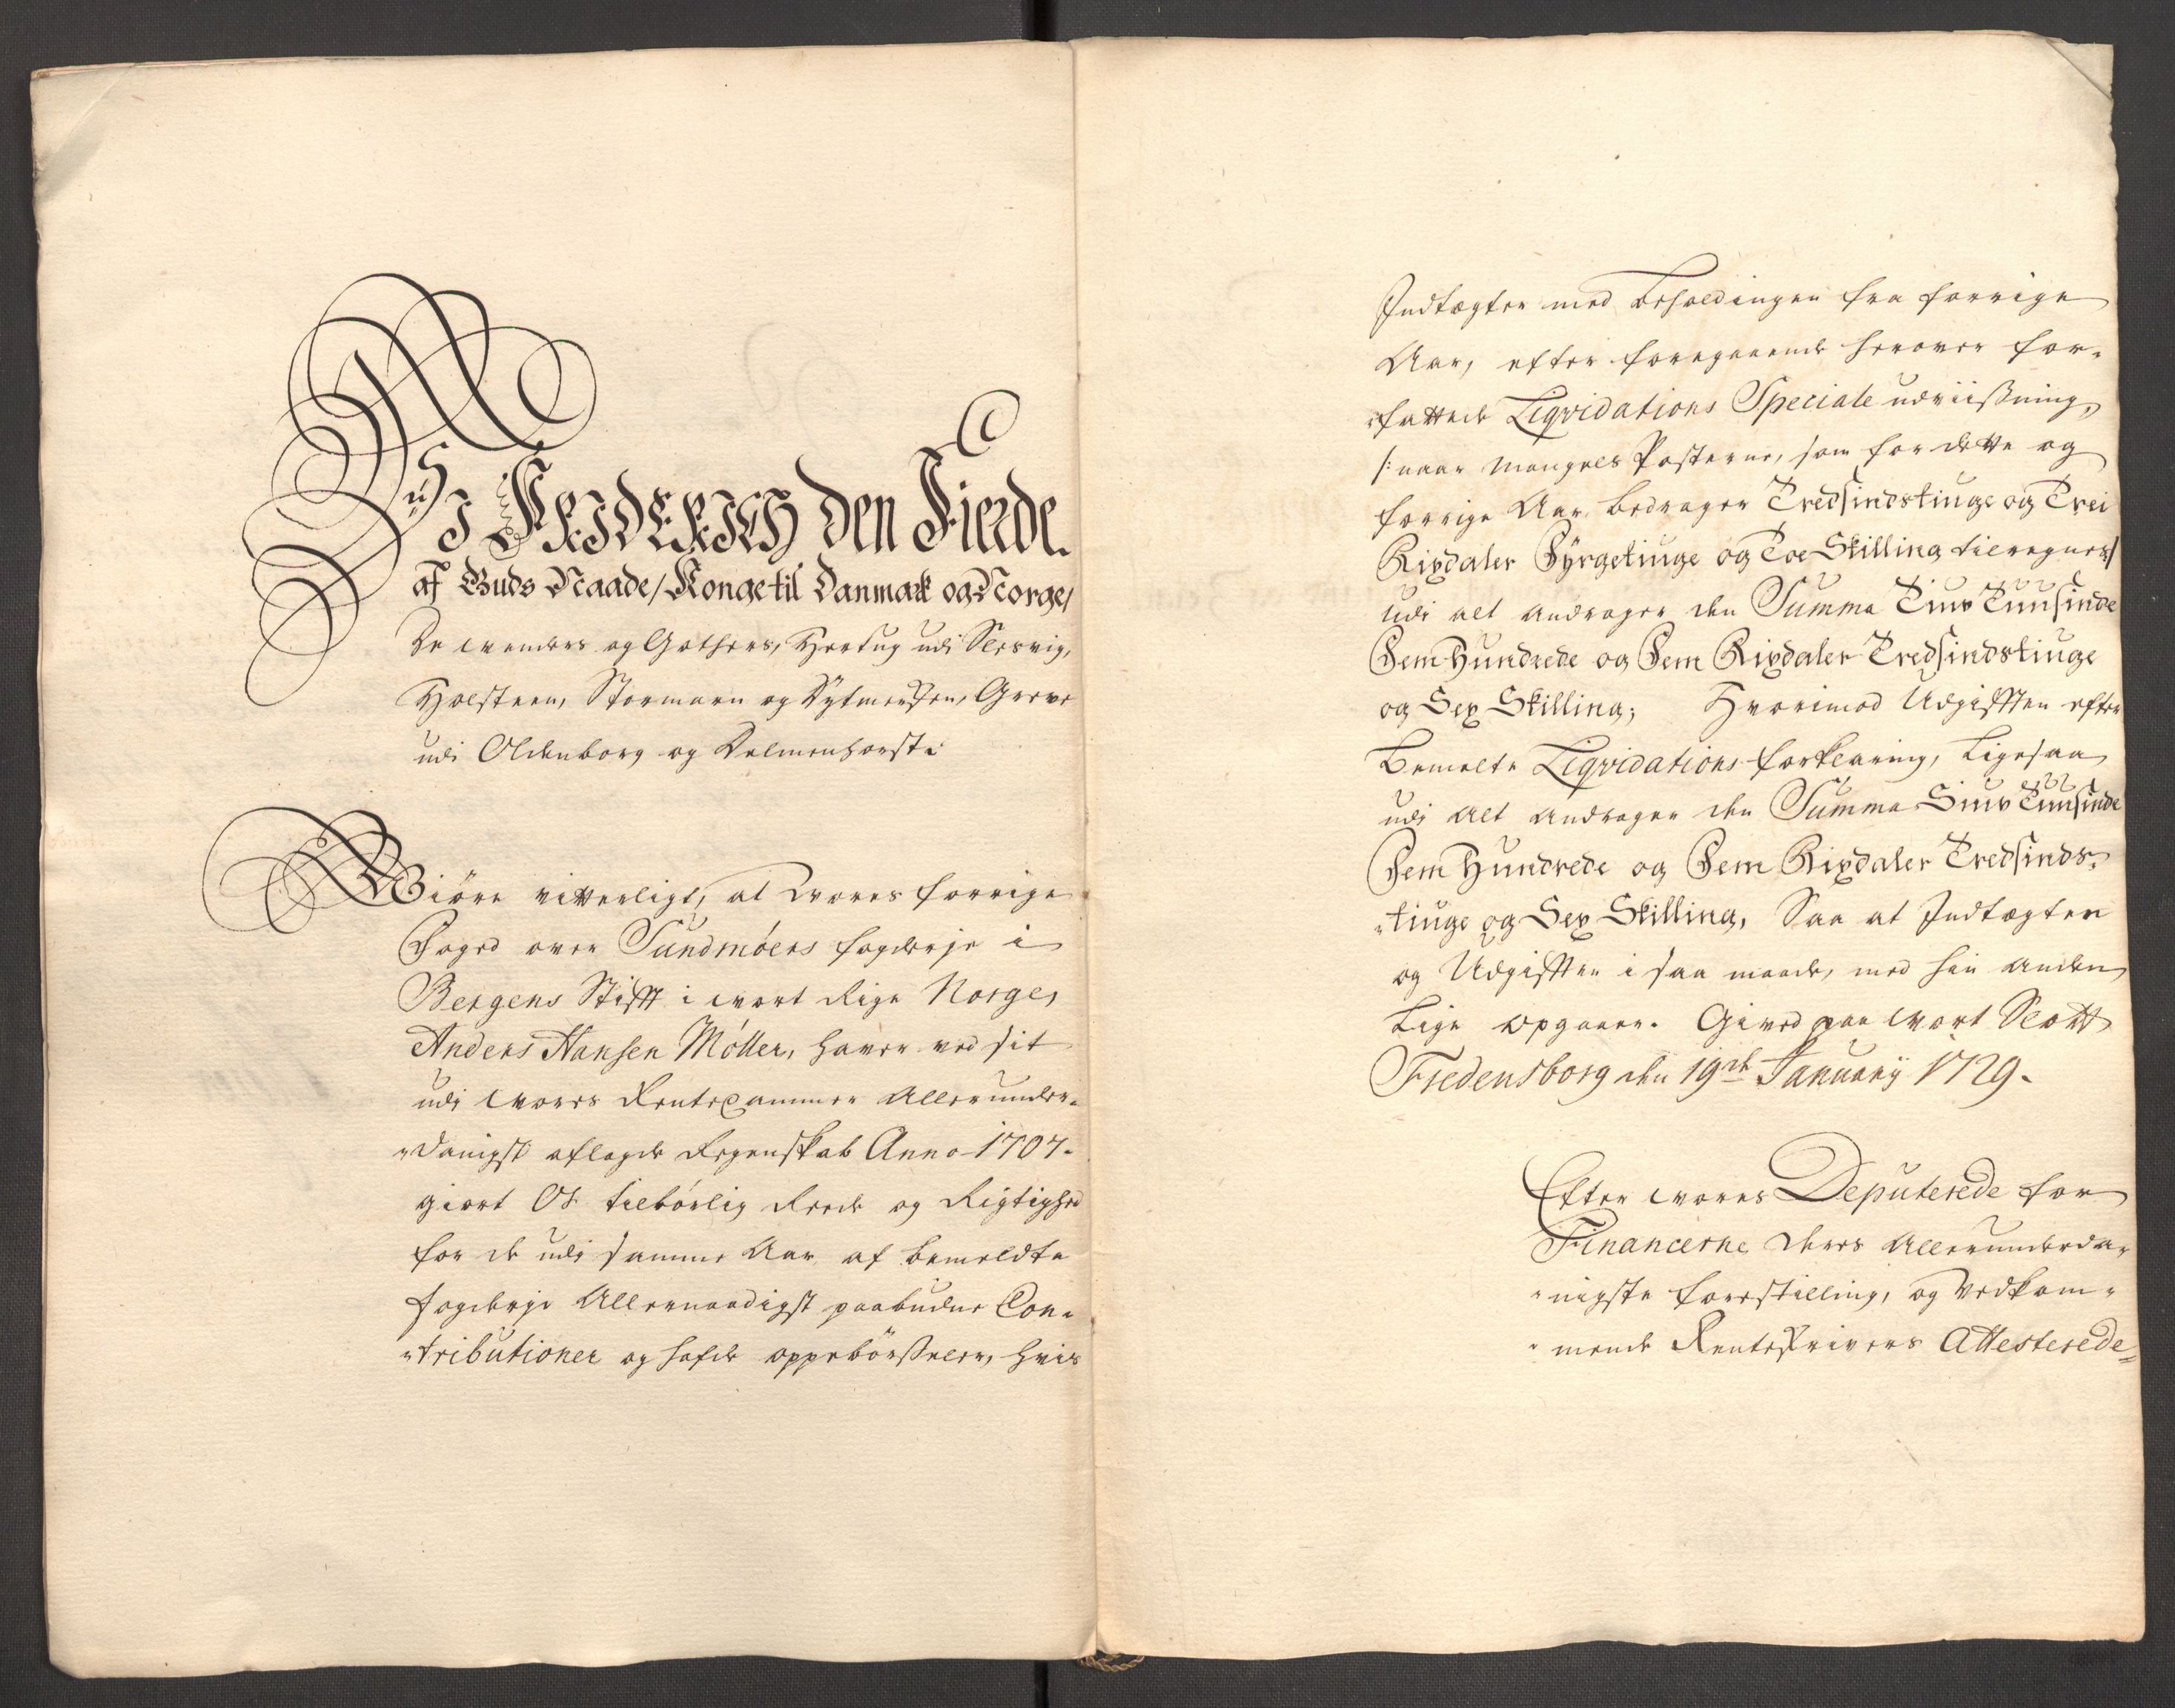 Wii FRIDERICH den Fierde.
af Guds Naade/ Konge til Danmark og Norge/
De Wenders og Gothers, Hertug udi Slesvig,
Holsteen, Stormarn og Dytmersken, Greve
udi Oldenborg og Delmenhorst:
Giöre vitterligt, at Wores forrige
Foged over Sundmöers fogderje i
Bergens Stifft i Wort Rige Norge,
Anders Hansen Möller, haver ved sit
udi Wores Rentecammer Allerunder-
„danigst aflagde Regenskab Anno 1707.
giort Os tilbörlig Reede og Rigtighed
for de udi samme Aar af bemeldte
fogderje Allernaadigst paabudne Con-
„tributioner og hafde oppebörsseler, hvis
Indtægter med Beholdingen fra forrige
Aar, efter foregaaende herover for-
„fattede Liqvidations Speciale udviissning,
/: naar Mangels Posterne, som for dette og
forrige Aar bedrager Tredsindstiuge og Trei
Rixdaler Fyrgetiuge og Toe Skilling tilregnes/
udi alt andrager den Summa Siuv Tuusinde
Fem Hundrede og Fem Rixdaler Tredsindstiuge
og Sex Skilling; Hvorimod Udgifften efter
Bemelte Liqvidations forklaring, Ligesaa
udi Alt andrager den Summa Siuv Tuusinde
Fem Hundrede og Fem Rixdaler Tredsinds-
„tiuge og Sex Skilling, Saa at Indtægten
og Udgifften i saa maade, med hin anden
Lige opgaaer. Gived paa Wort Slott
Fredensborg den 19de January 1729.
Efter Wores Deputerede for
Financerne deres Allerunderda-
„nigste forestilling, og vedkom-
„mende Renteskrivers Attesterede